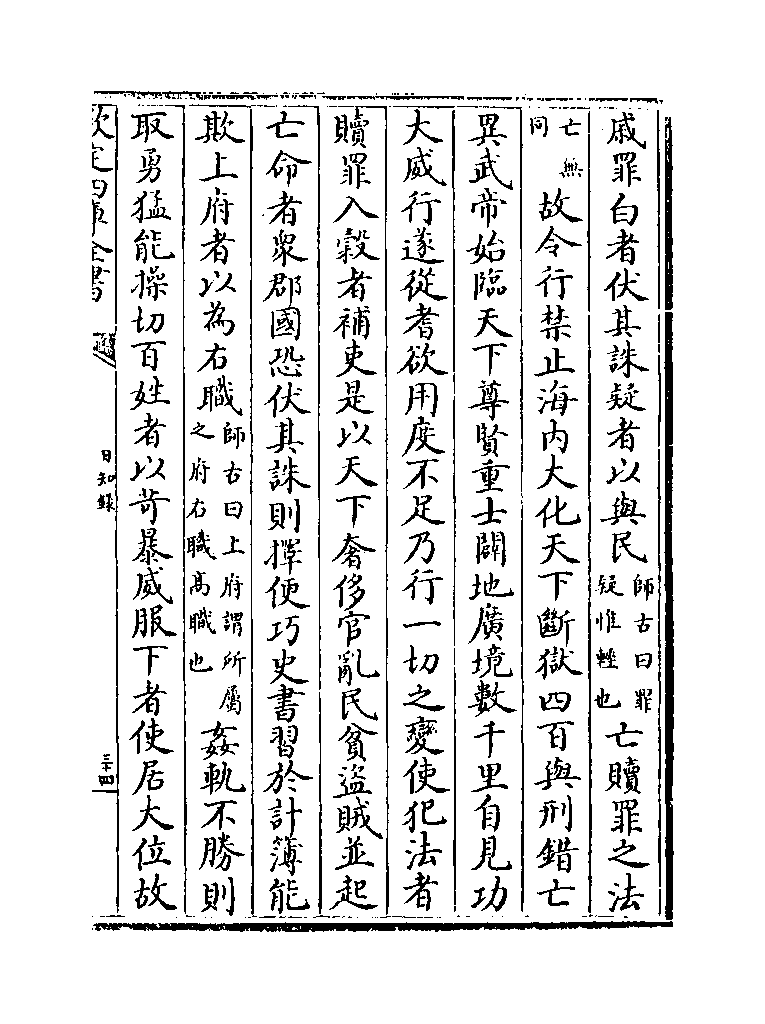 戚罪白者伏其誅疑者以與民師古曰罪疑惟輕也亡贖罪之法
亡無同故令行禁止海内大化天下斷獄四百與刑錯亡
異武帝始臨天下尊賢重士闢地廣境數千里自見功
大威行遂從耆欲用度不足乃行一切之變使犯法者
贖罪入穀者補吏是以天下奢侈官亂民貧盜賊並起
亡命者衆郡國恐伏其誅則擇便巧史書習於計簿能
欺上府者以為右職師古曰上府謂所屬之府右職高職也姦軌不勝則
取勇猛能操切百姓者以苛暴威服下者使居大位故
欽定四庫全書
日知錄
三十四